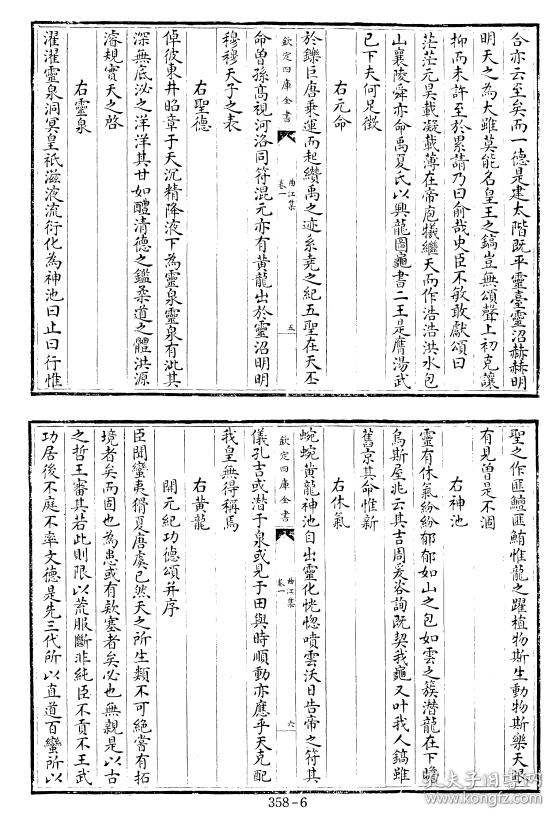 合亦云至矣而一德是建太階既平靈臺靈沼赫赫明
明天之為大雖莫能名皇王之鎬豈無頌聲上初克讓
抑而未許至於累請乃曰俞哉史臣不敏敢獻頌曰
茫茫元昊載凝載薄在帝庖犧繼天而作浩浩洪水包
山襄陵舜亦命禹夏氏以興龍圖龜書二王是膺湯武
已下夫何足徵
右元命
於鑠巨唐乗運而起纘禹之迹系堯之紀五聖在天丕
欽定四庫全書
曲江集
卷一
五
命曽孫髙視河洛同符混元亦有黄龍出於靈沼明明
穆穆天子之表
右聖德
倬彼東井昭章于天沉精降液下為靈泉靈泉有泚其
深無底泌之洋洋其甘如醴清德之鑑柔道之體洪源
濬規實天之啓
右靈泉
濯濯靈泉洞冥皇祇滋液流衍化為神池曰止曰行惟
聖之作匪鱣匪鮪惟龍之躍植物斯生動物斯樂天眼
有見曽是不涸
右神池
靈有休氣紛紛郁郁如山之包如雲之簇潜龍在下瞻
烏斯屋兆云其吉周爰咨詢既契我龜又叶我人鎬雖
舊京其命惟新
右休氣
蜿蜿黄龍神池自出靈化恍惚噴雲沃日告帝之符其
欽定四庫全書
曲江集
卷一
六
儀孔吉或潛于泉或見于田與時順動亦應乎天克配
我皇無得稱焉
右黄龍
開元紀功德頌并序
臣聞蠻夷猾夏唐虞已然天之所生類不可絶嘗有拓
境者矣而固也為患或有欵塞者矣必也無親是以古
之哲王審其若此則限以荒服斷非純臣不貢不王武
功居後不庭不率文德是先三代所以直道百蠻所以
358-6
孔夫子旧书网
www.kongfz.com